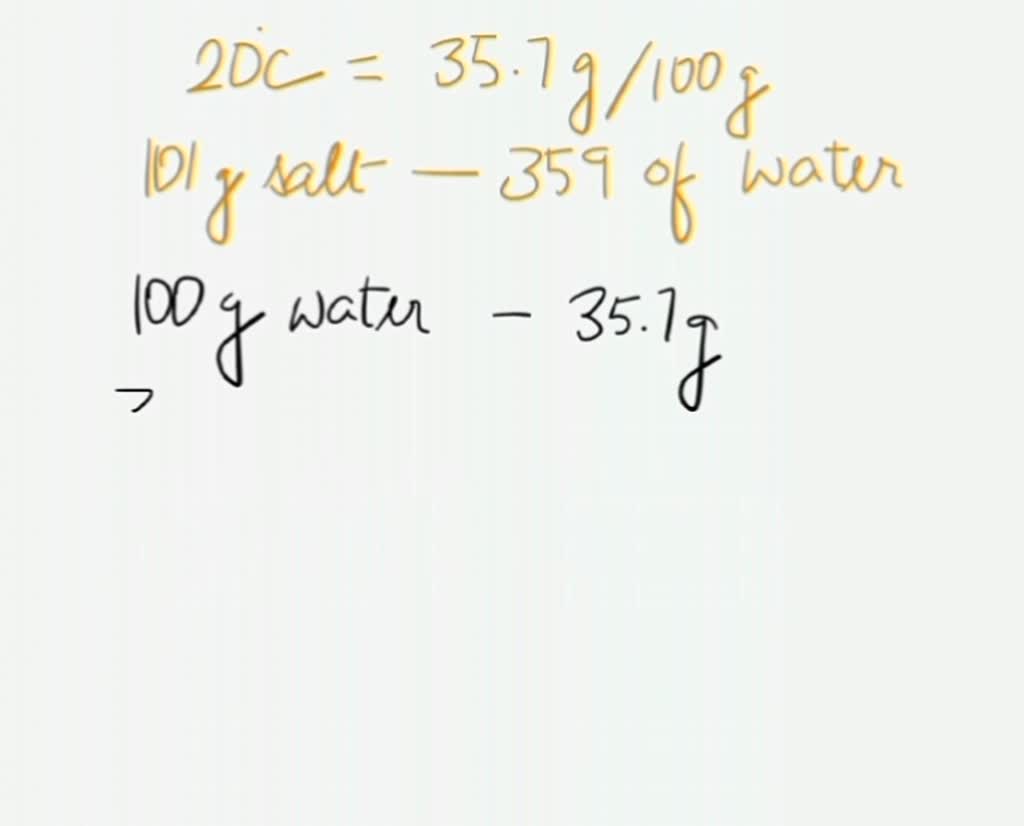 20°C = 35.7g/100g
101g salt - 359 of water
100g water - 35.7g